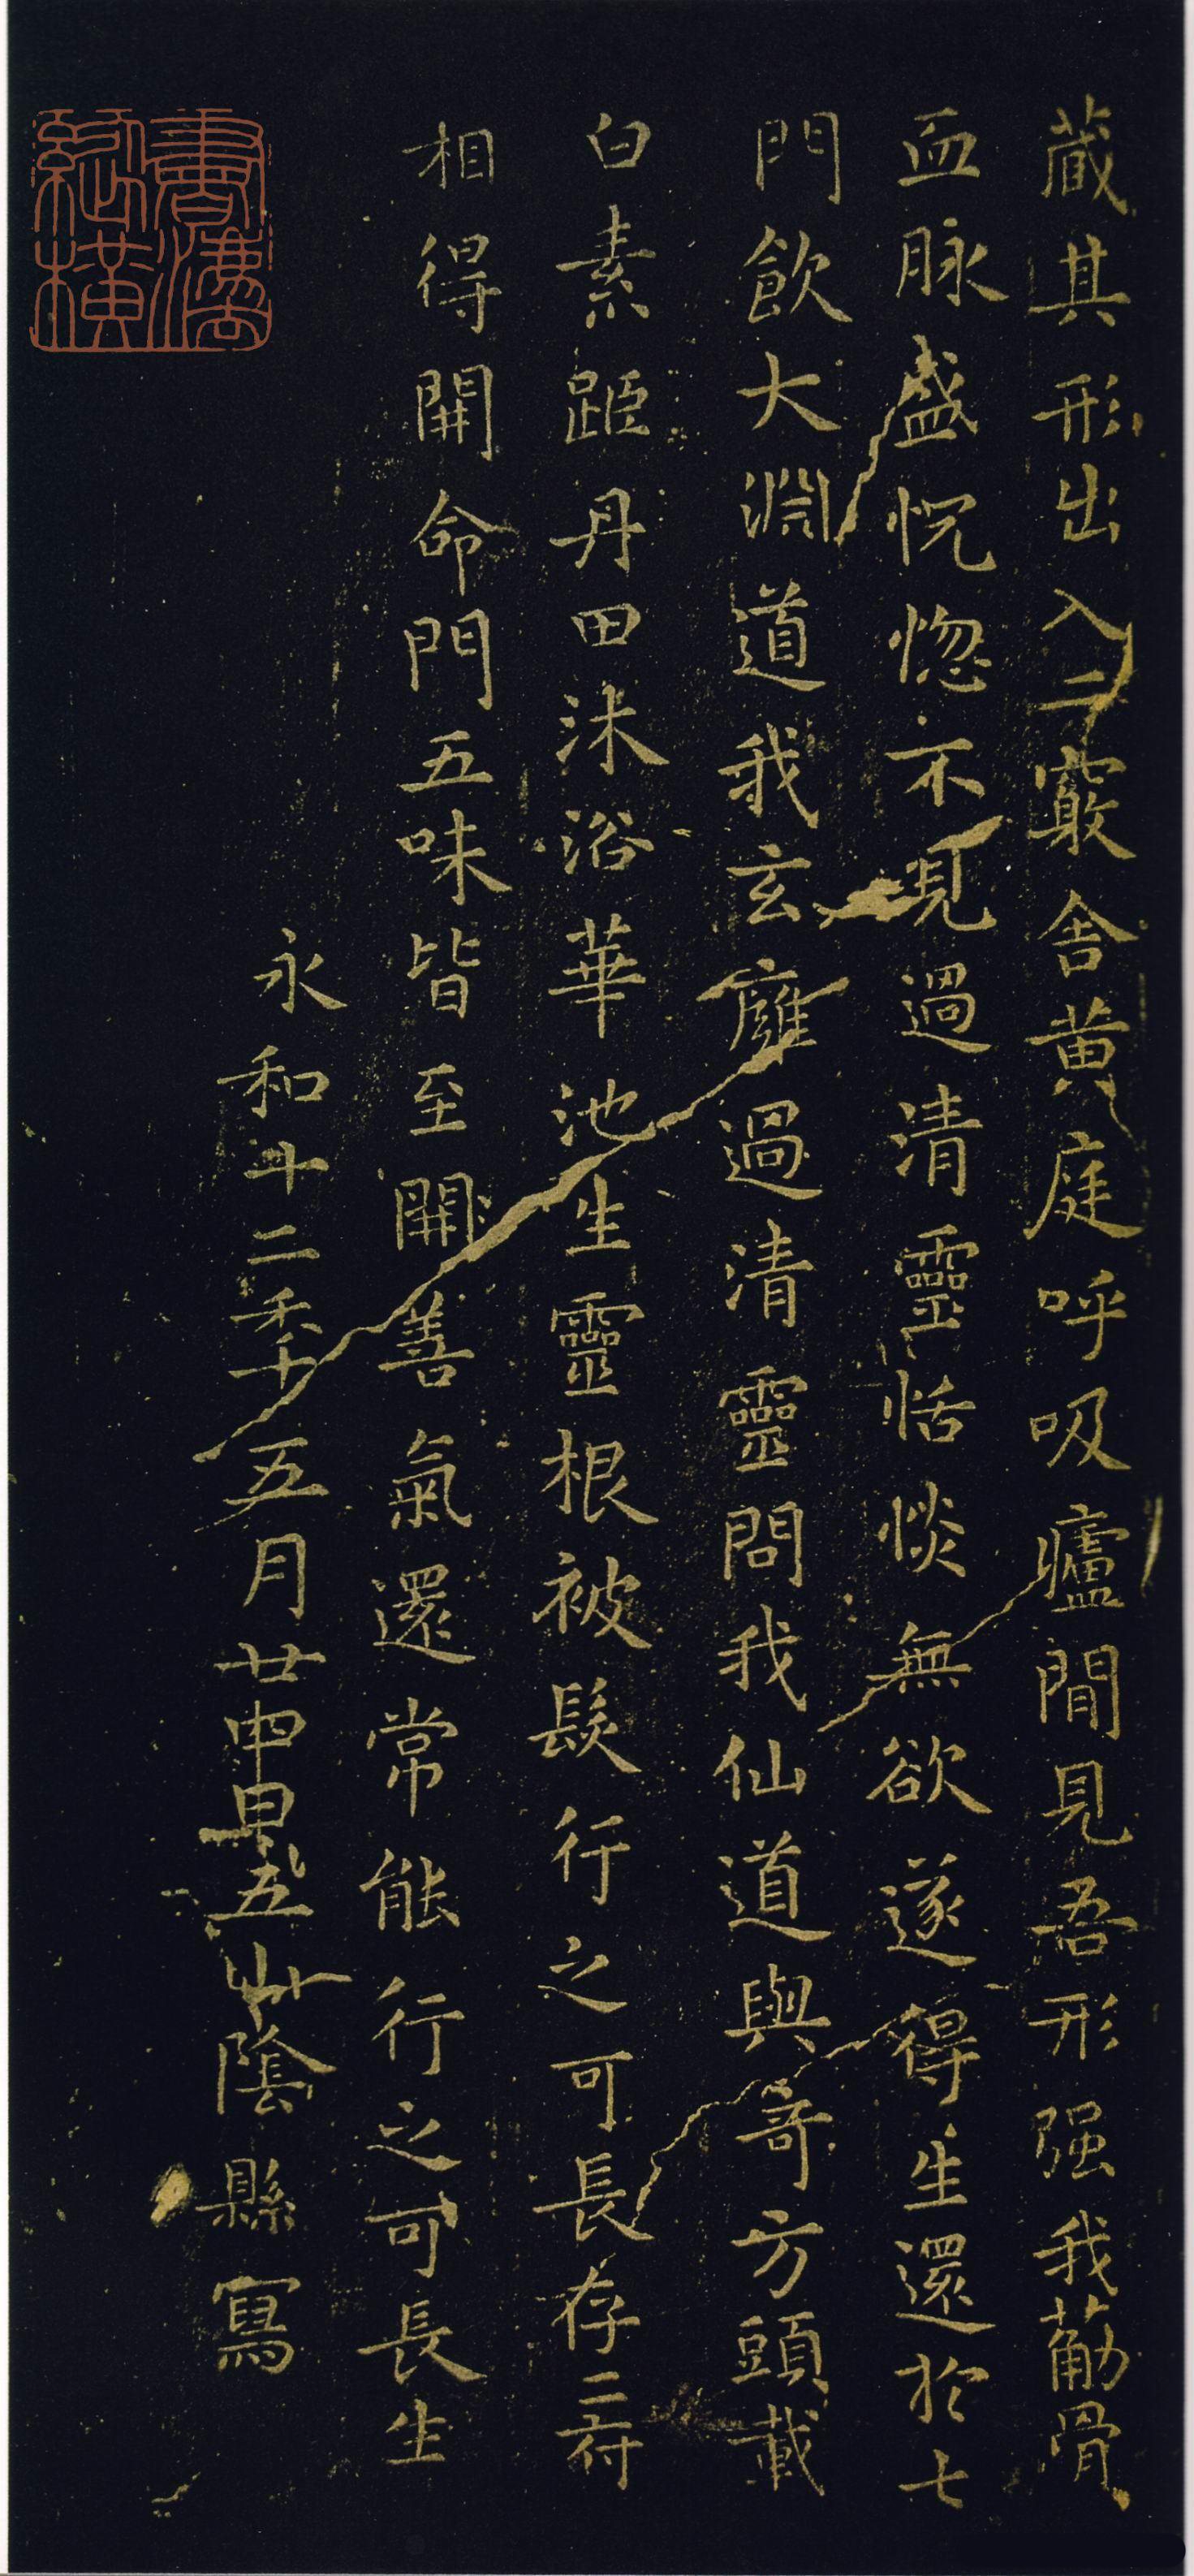 藏其形出入二竅舍黃庭呼吸廬間見吾形强我筋骨
血脉盛恍惚不見過清靈恬惔無欲遂得生還於七
門飲大淵道我玄廱過清靈問我仙道與奇方頭載
白素距丹田沐浴華池生靈根被髮行之可長存二府
相得開命門五味皆至開善氣還常能行之可長生
永和十二年五月廿四日五山陰縣寫
書法縱橫